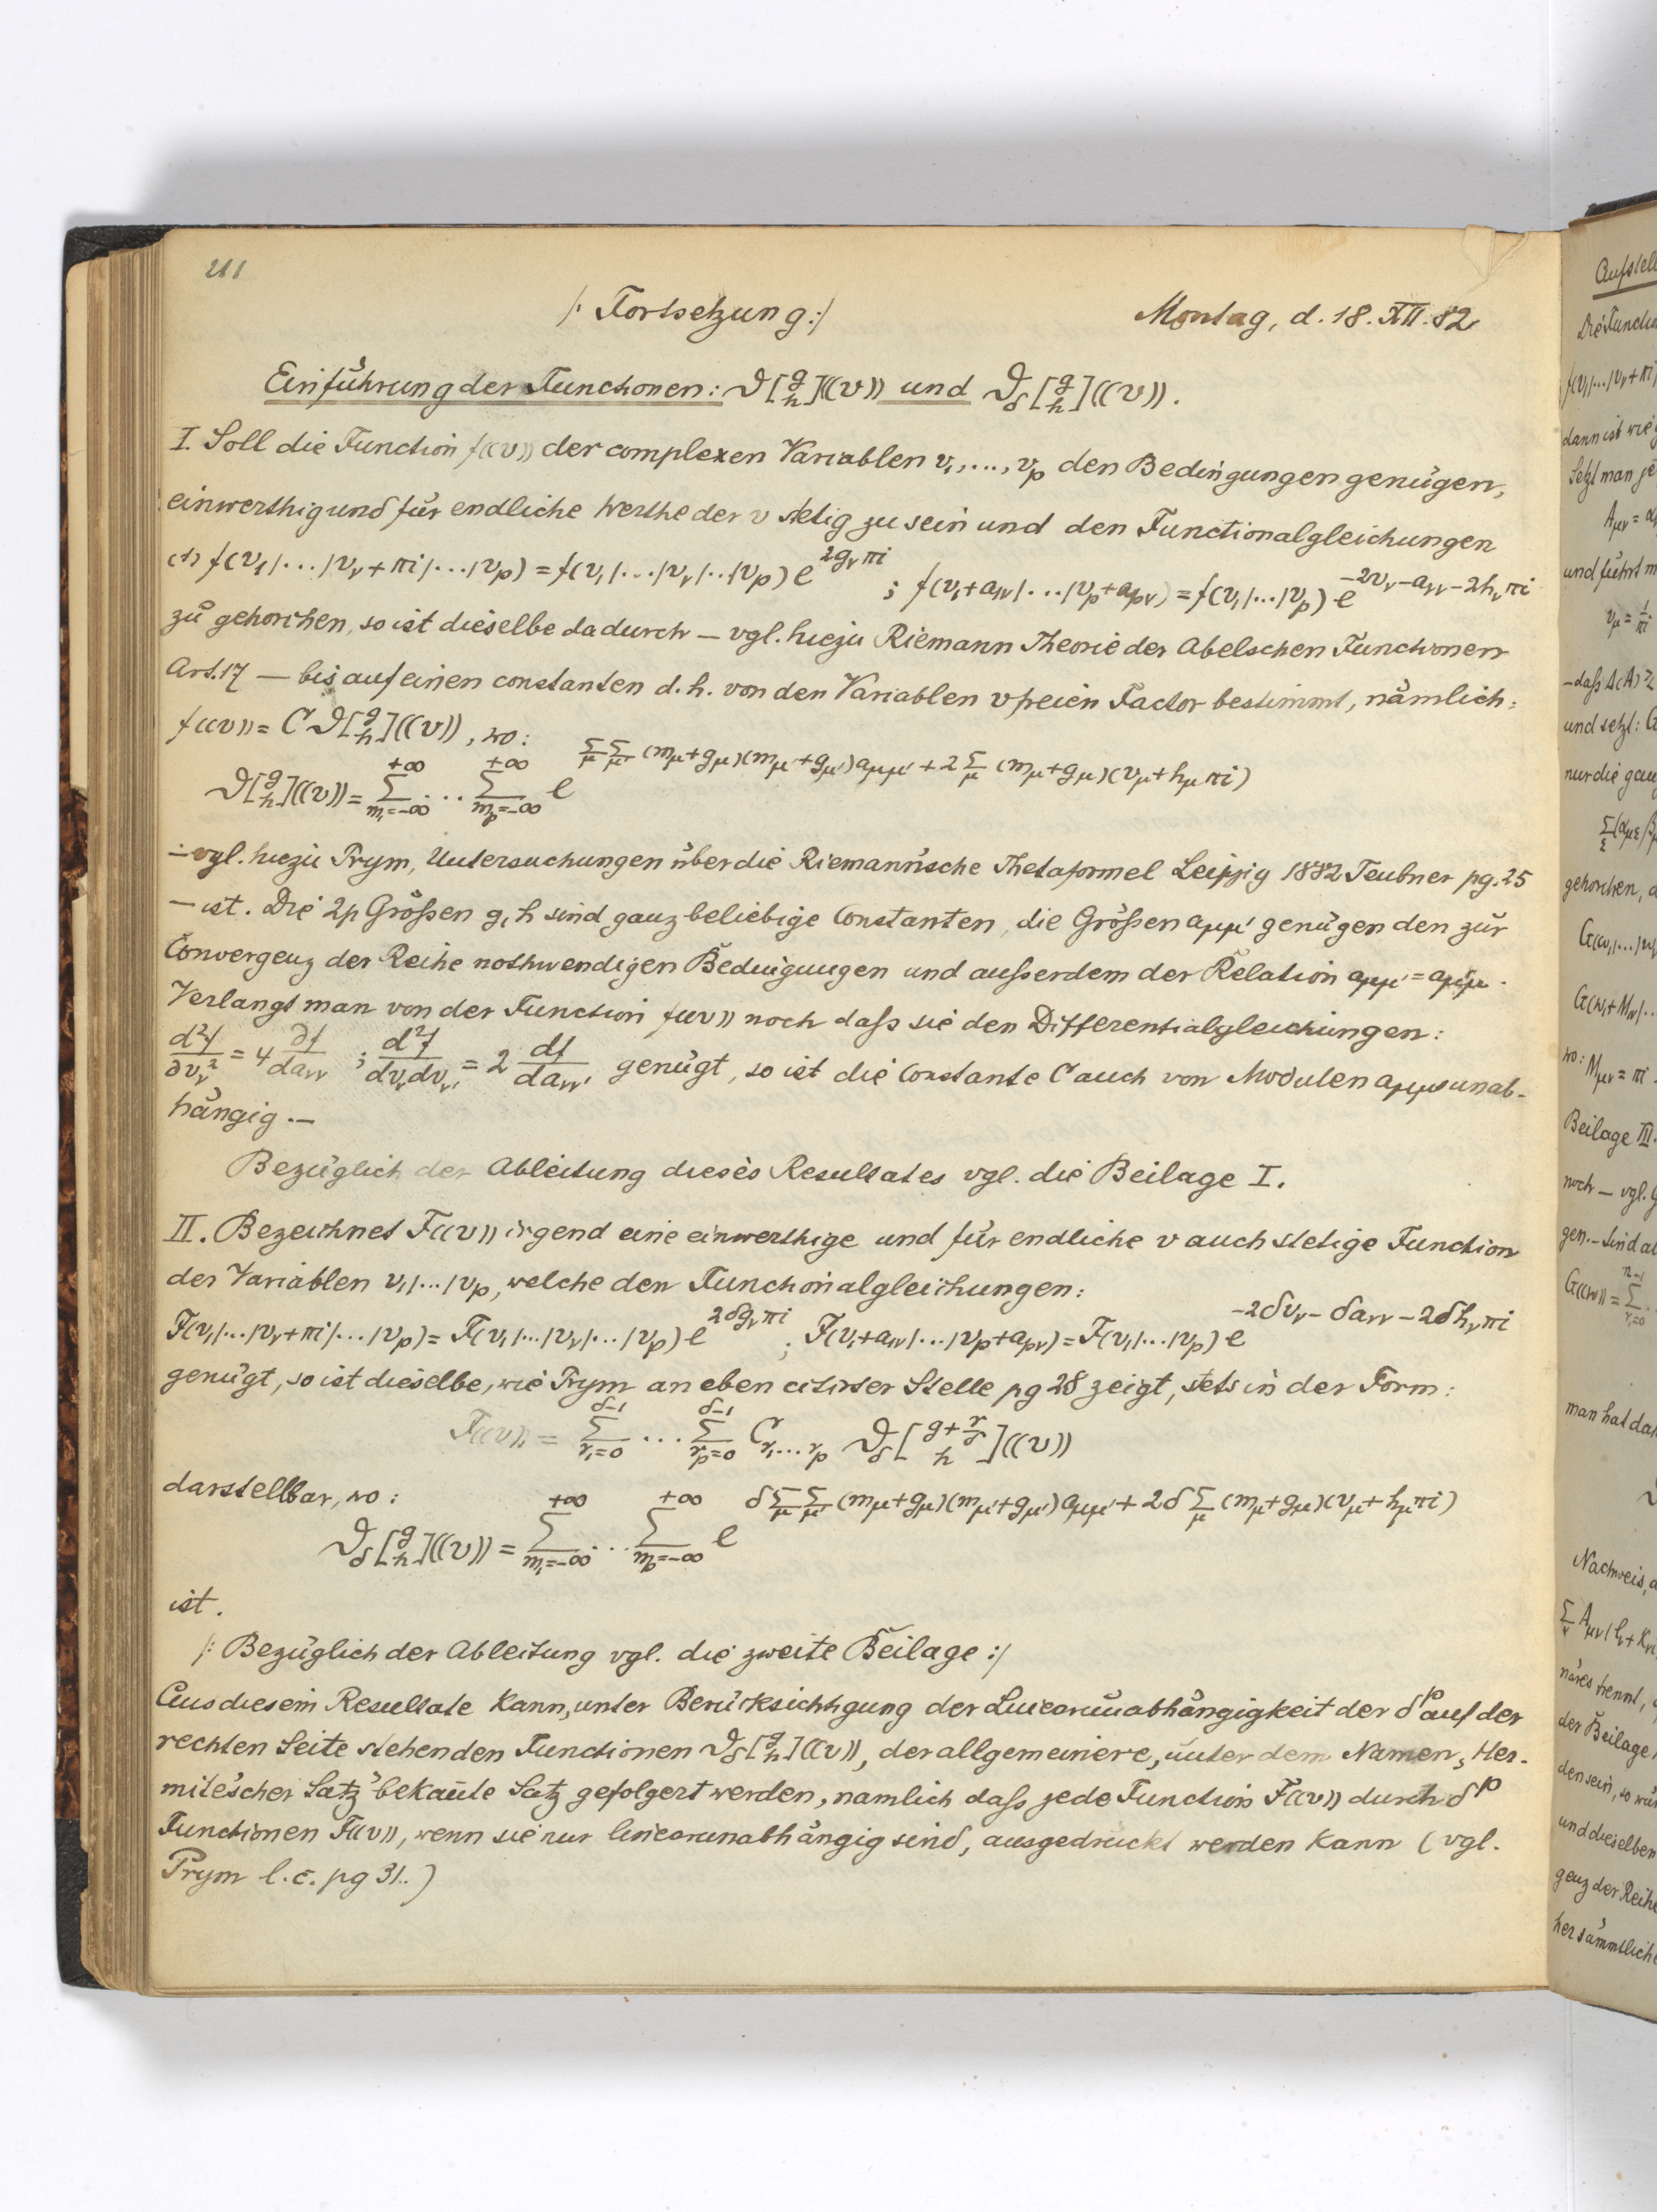 211
/: Fortsetzung :/ Montag, d. 18. XII. 82
Einführung der Functionen: ϑ[g h]((v)) und ϑ_δ[g h]((v)).
I. Soll die Function f((v)) der complexen Variablen v₁, ..., v_p den Bedingungen genügen,
einwerthig und für endliche Werthe der v stetig zu sein und den Functionalgleichungen
(1) f(v₁|...|v_ν+πi|...|v_p) = f(v₁|...|v_ν|..|v_p) e^{2g_ν πi} ; f(v₁+a_{1ν}|...|v_p+a_{pν}) = f(v₁|...|v_p) e^{-2v_ν-a_{νν}-2h_ν πi}
zu gehorchen, so ist dieselbe dadurch — vgl. hiezu Riemann Theorie der Abelschen Functionen
Art. 17 — bis auf einen constanten d. h. von den Variablen v freien Factor bestimmt, nämlich:
f((v)) = C ϑ[g h]((v)), wo:
ϑ[g h]((v)) = Σ_{m₁=-∞}^{+∞} ... Σ_{m_p=-∞}^{+∞} e^{Σ_μ Σ_μ' (m_μ+g_μ)(m_μ'+g_μ')a_{μμ'} + 2Σ_μ (m_μ+g_μ)(v_μ+h_μ πi)}
— vgl. hiezu Prym, Untersuchungen über die Riemann'sche Thetaformel Leipzig 1882 Teubner pg. 25
— ist. Die 2p Größen g, h sind ganz beliebige Constanten, die Größen a_{μμ'} genügen den zur
Convergenz der Reihe nothwendigen Bedingungen und außerdem der Relation a_{μμ'} = a_{μ'μ}.
Verlangt man von der Function f((v)) noch daß sie den Differentialgleichungen:
d²f/∂v_ν² = 4 ∂f/da_{νν} ; d²f/dv_ν dv_ν' = 2 df/da_{νν'} genügt, so ist die Constante C auch von Modulen a_{μμ'} unab-
hängig. —
Bezüglich der Ableitung dieses Resultates vgl. die Beilage I.
II. Bezeichnet F((v)) irgend eine einwerthige und für endliche v auch stetige Function
der Variablen v₁|...|v_p, welche den Functionalgleichungen:
F(v₁|...|v_ν+πi|...|v_p) = F(v₁|...|v_ν|...|v_p) e^{2δg_ν πi} ; F(v₁+a_{1ν}|...|v_p+a_{pν}) = F(v₁|...|v_p) e^{-2δv_ν - δa_{νν} - 2δh_ν πi}
genügt, so ist dieselbe, wie Prym an eben citirter Stelle pg 28 zeigt, stets in der Form:
F((v)) = Σ_{r₁=0}^{δ-1} ... Σ_{r_p=0}^{δ-1} C_{r₁...r_p} ϑ_δ[g+r/δ h]((v))
darstellbar, wo:
ϑ_δ[g h]((v)) = Σ_{m₁=-∞}^{+∞} ... Σ_{m_p=-∞}^{+∞} e^{δΣ_μ Σ_μ' (m_μ+g_μ)(m_μ'+g_μ')a_{μμ'} + 2δΣ_μ (m_μ+g_μ)(v_μ+h_μ πi)}
ist.
/: Bezüglich der Ableitung vgl. die zweite Beilage :/
Aus diesem Resultate kann, unter Berücksichtigung der Linearunabhängigkeit der δ^p auf der
rechten Seite stehenden Functionen ϑ_δ[g h]((v)), der allgemeinere, unter dem Namen „Her-
mite'scher Satz" bekan̄te Satz gefolgert werden, nämlich daß jede Function F((v)) durch δ^p
Functionen F((v)), wenn sie nur linearunabhängig sind, ausgedrückt werden kann (vgl.
Prym l. c. pg 31..)